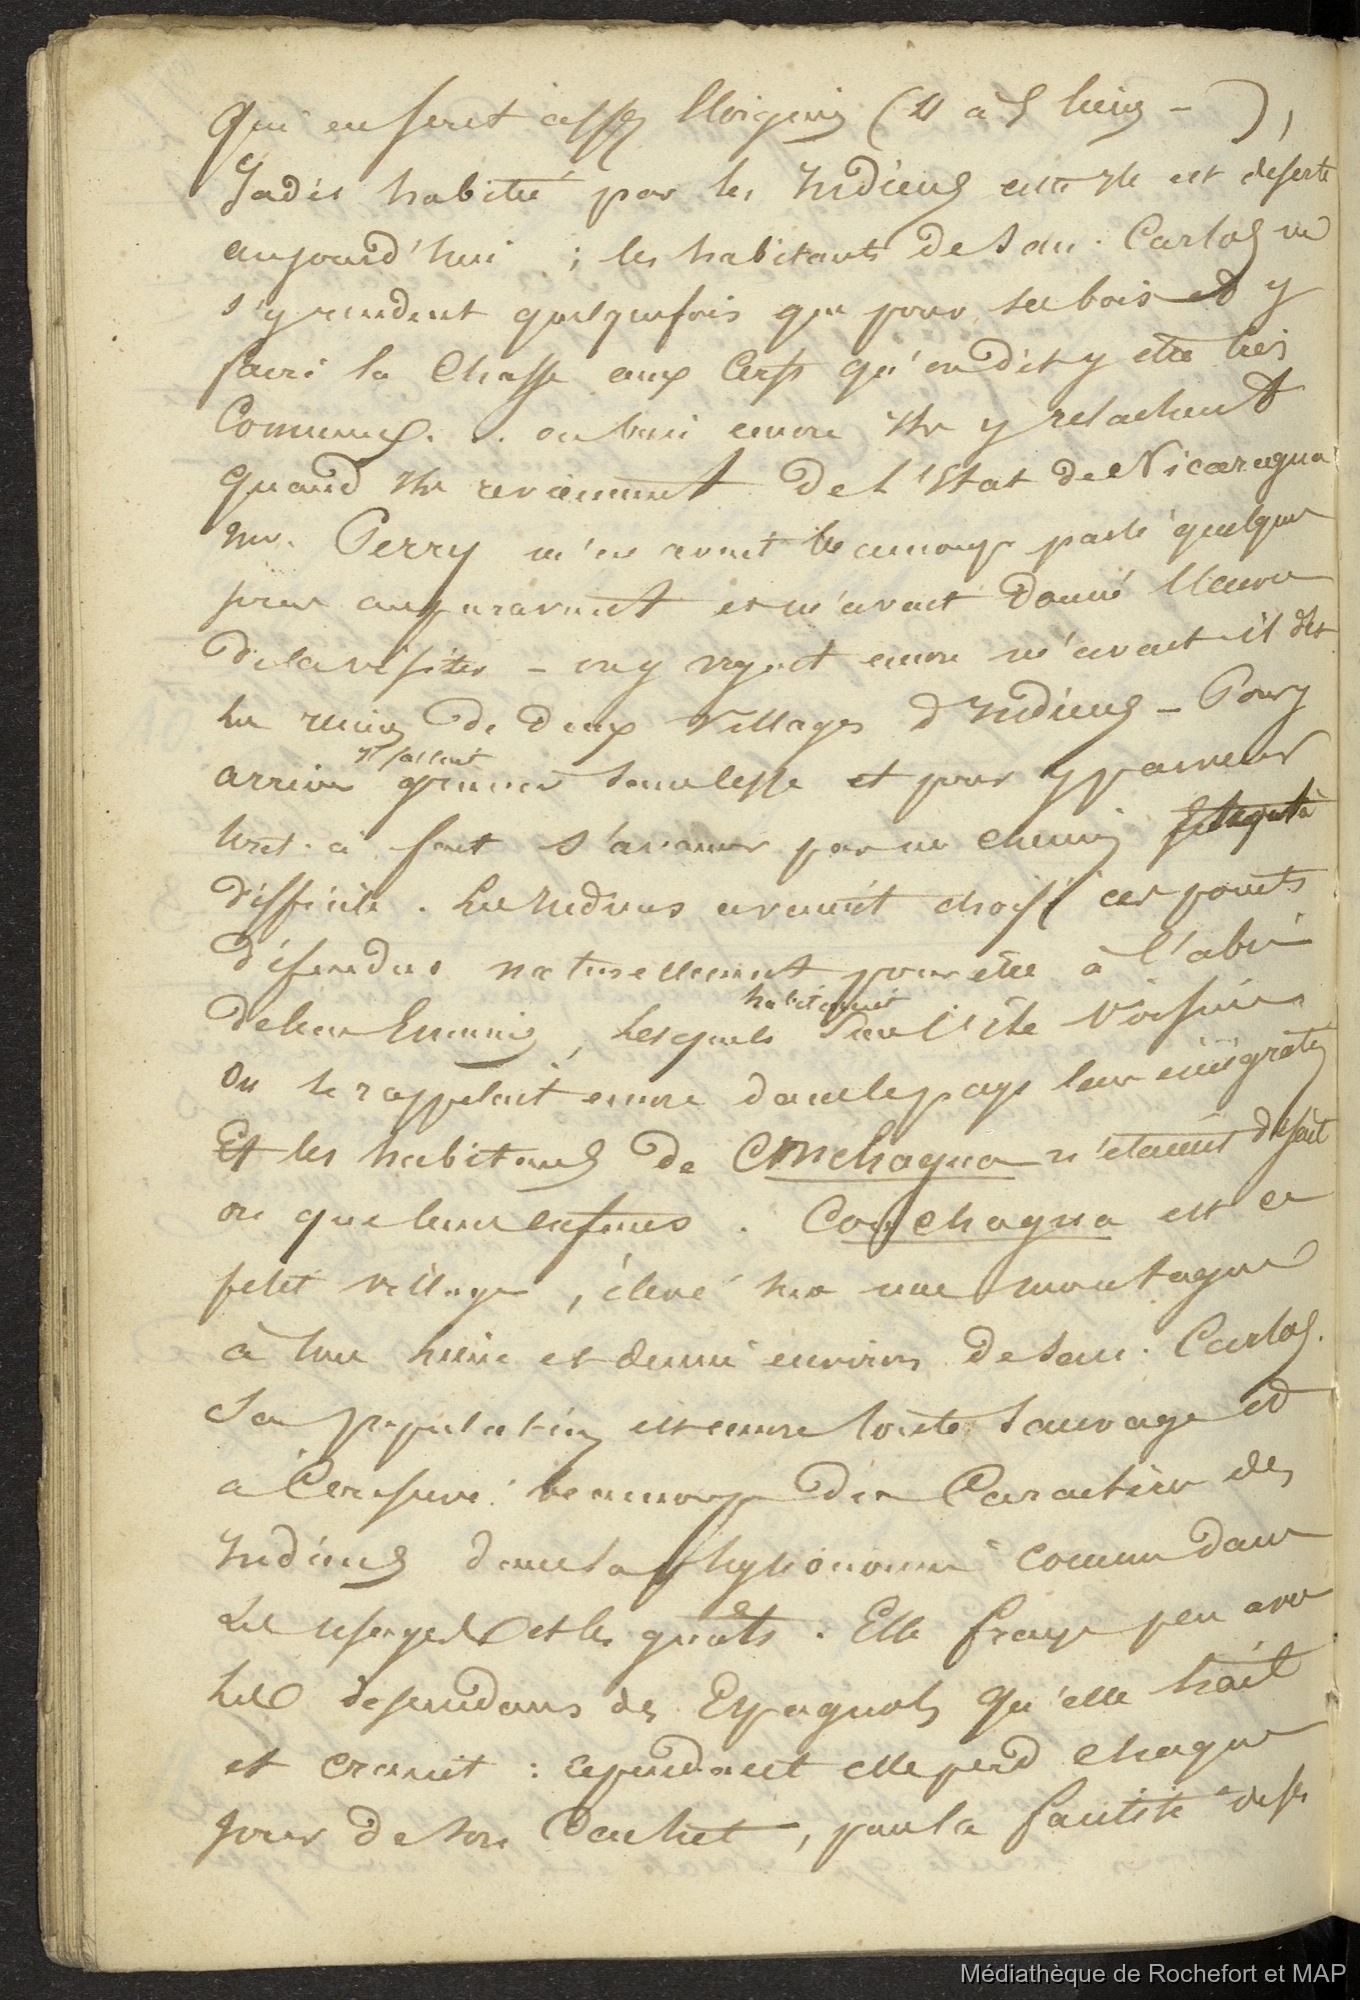 qui en serait assez éloigné (4 à 5 lieues - ),
Jadis habitée par les Indiens cette ile est deserte
aujourd'hui ; les habitants de San. Carlos ne
s'y rendent quelquefois que pour ses bois et y
faire la chasse aux cerfs qu'on dit y etre très
communs. . . ou bien encore ils y relachent
quand ils reviennent de l'Etat de Nicaragua
Mr. Perry m'en avait beaucoup parlé quelques
jours auparavant et m'avait donné l'envie
de la visiter - on y voyait encore m'avait-il dit
les ruines de deux villages d'Indiens - Pour y
arriver sans cesse et pour y parvenir
il fait s'avancer par un chemin
difficile . Les Indiens avaient choisi ces points
défendus naturellement pour être à l'abri
habitaient
de leurs Ennemis, lesquels sur l'ile voisine
on se rappelait encore dans le pays leur émigration
Et les habitans de Conchagua n'étaient disait
on que leurs enfans . Conchagua est ce
petit village, élevé sur une montagne
à une lieue et demie environ de San. Carlos.
Sa population est encore toute sauvage et
a conservé beaucoup du caractère des
Indiens dans la physionomie comme dans
les usages et les goûts . Elle fraye peu avec
les descendans des Espagnols qu'elle hait
et craint : cependant elle perd chaque
jour de son cachet, par la facilité de ses
Médiathèque de Rochefort et MAP